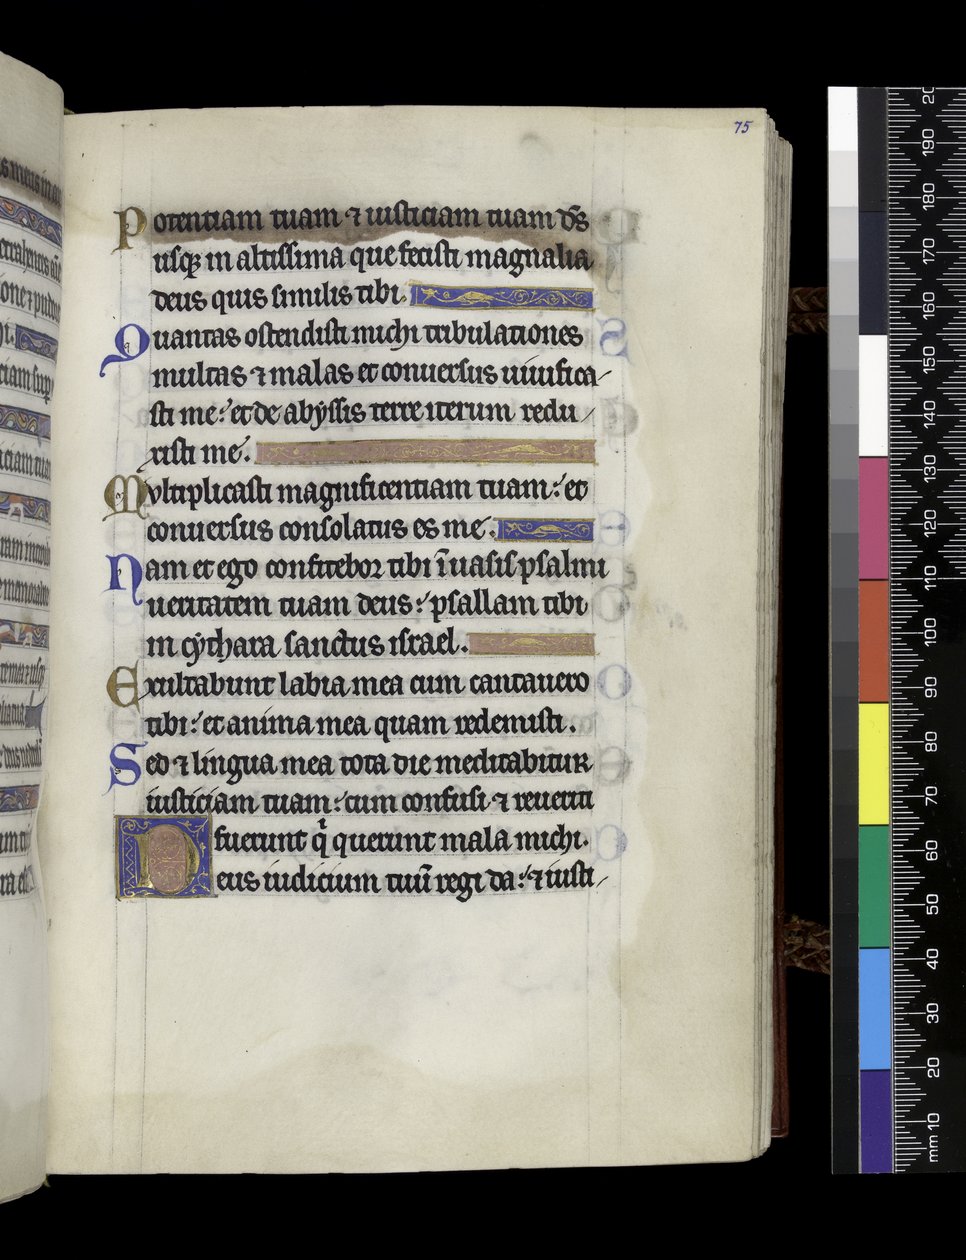 75
Potentiam tuam ⁊ iusticiam tuam ds̄
usqꝫ in altissima que fecisti magnalia
deus quis similis tibi.
Quantas ostendisti michi tribulationes
multas ⁊ malas et conuersus uiuifica-
sti me: et de abyssis terre iterum redu-
xisti me.
Multiplicasti magnificentiam tuam: et
conuersus consolatus es me.
Nam et ego confitebor tibi ī uasis psalmi
ueritatem tuam deus: psallam tibi
in cythara sanctus israel.
Exultabunt labia mea cum cantauero
tibi: et anima mea quam redemisti.
Sed ⁊ lingua mea tota die meditabitur
iusticiam tuam: cum confusi ⁊ reueriti
fuerunt qͥ querunt mala michi.
Deus iudicium tuū regi da: ⁊ iusti-
mm 10 20 30 40 50 60 70 80 90 100 110 120 130 140 150 160 170 180 190